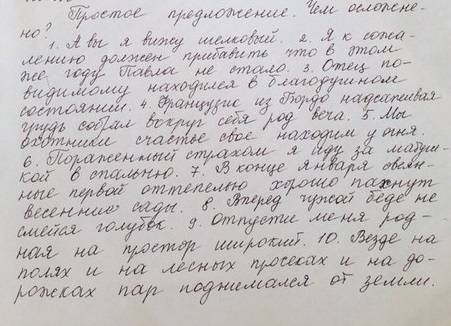 Простое предложение. Чем осложне-
но?
1. А вы я вижу шелковый. 2. Я к сожа-
лению должен прибавить что в этом
же году Павла не стало. 3. Отец по-
видимому находился в благодушном
состоянии. 4. Французик из Бордо надсаживая
грудь собрал вокруг себя род веча. 5. Мы
охотники счастье свое находим у огня.
6. Пораженный страхом я иду за матуш-
кой в спальню. 7. В конце января овеян-
ные первой оттепелью хорошо пахнут
весенние сады. 8. Вперед чужой беде не
смейся голубок. 9. Отпусти меня род-
ная на простор широкий. 10. Везде на
полях и на лесных просеках и на до-
рожках пар поднимался от земли.